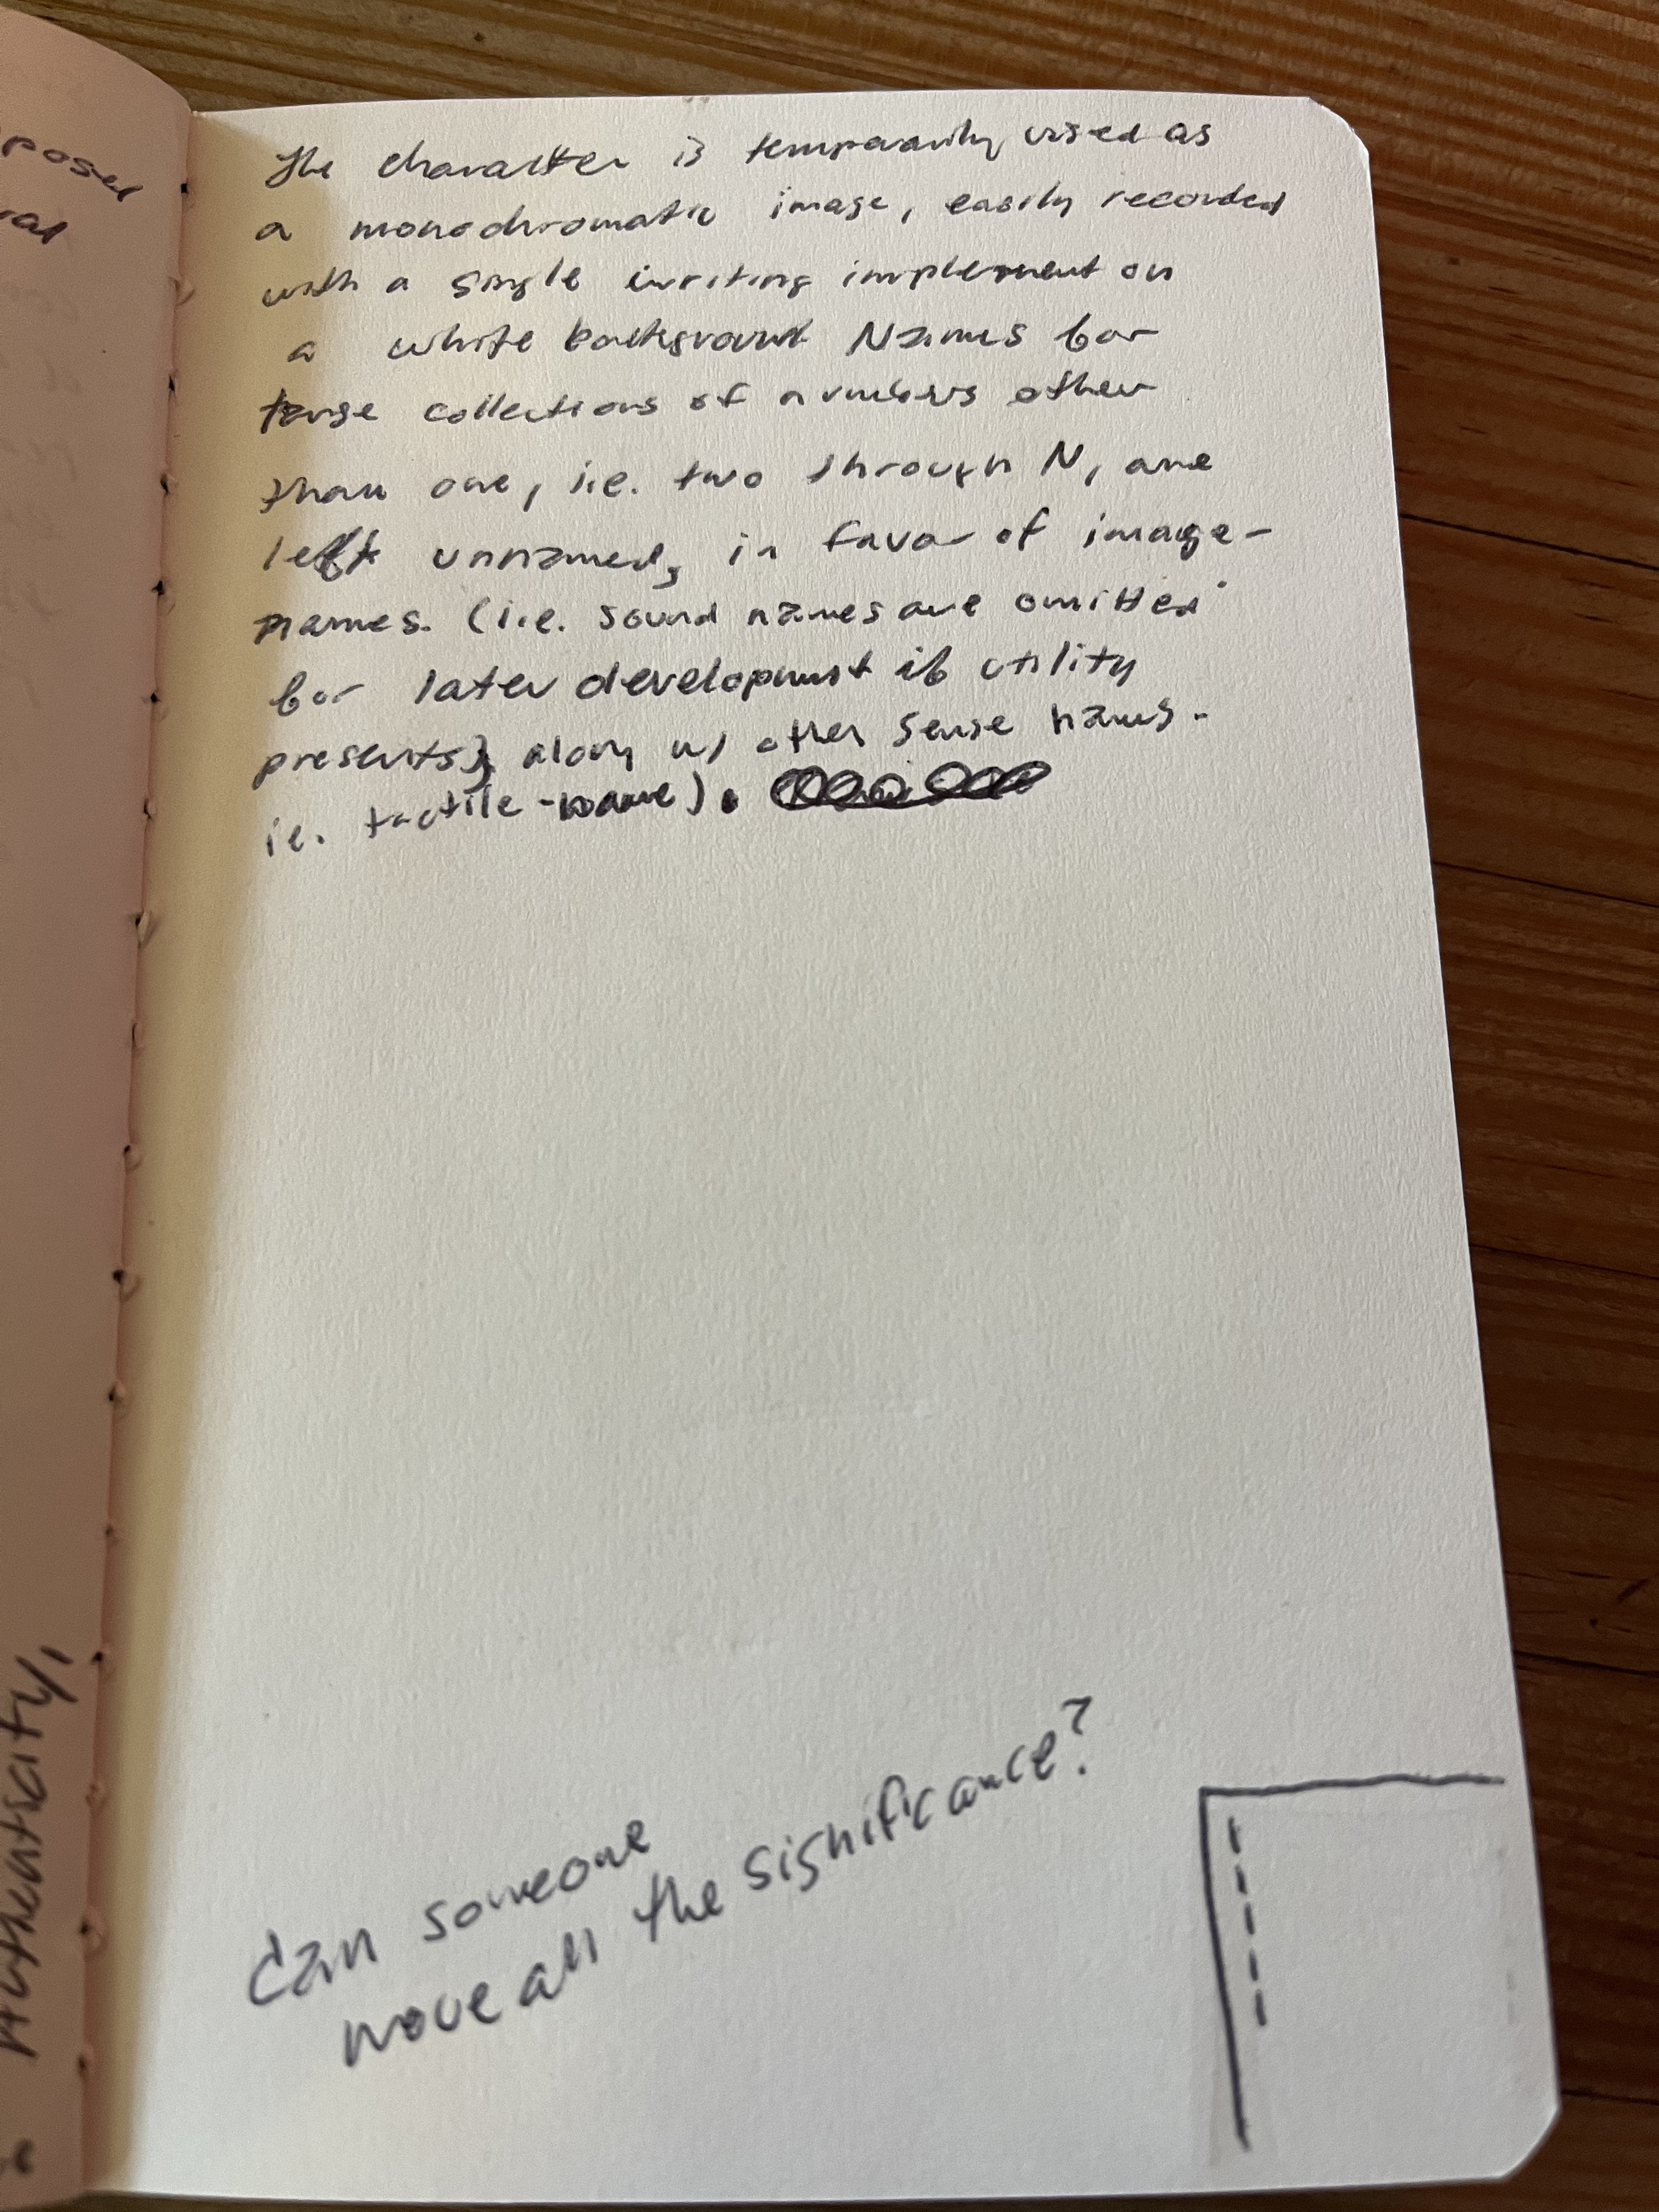 posed
ial
Authenticity,
The character is temporarily used as
a monochromatic image, easily recorded
with a single writing implement on
a white background Names for
these collections of numbers other
than one, i.e. two through N, are
left unnamed, in favor of image-
names. (i.e. sound names are omitted
for later development if utility
presents) along w/ other sense names.
ie. tactile-name).
Can someone
move all the significance?